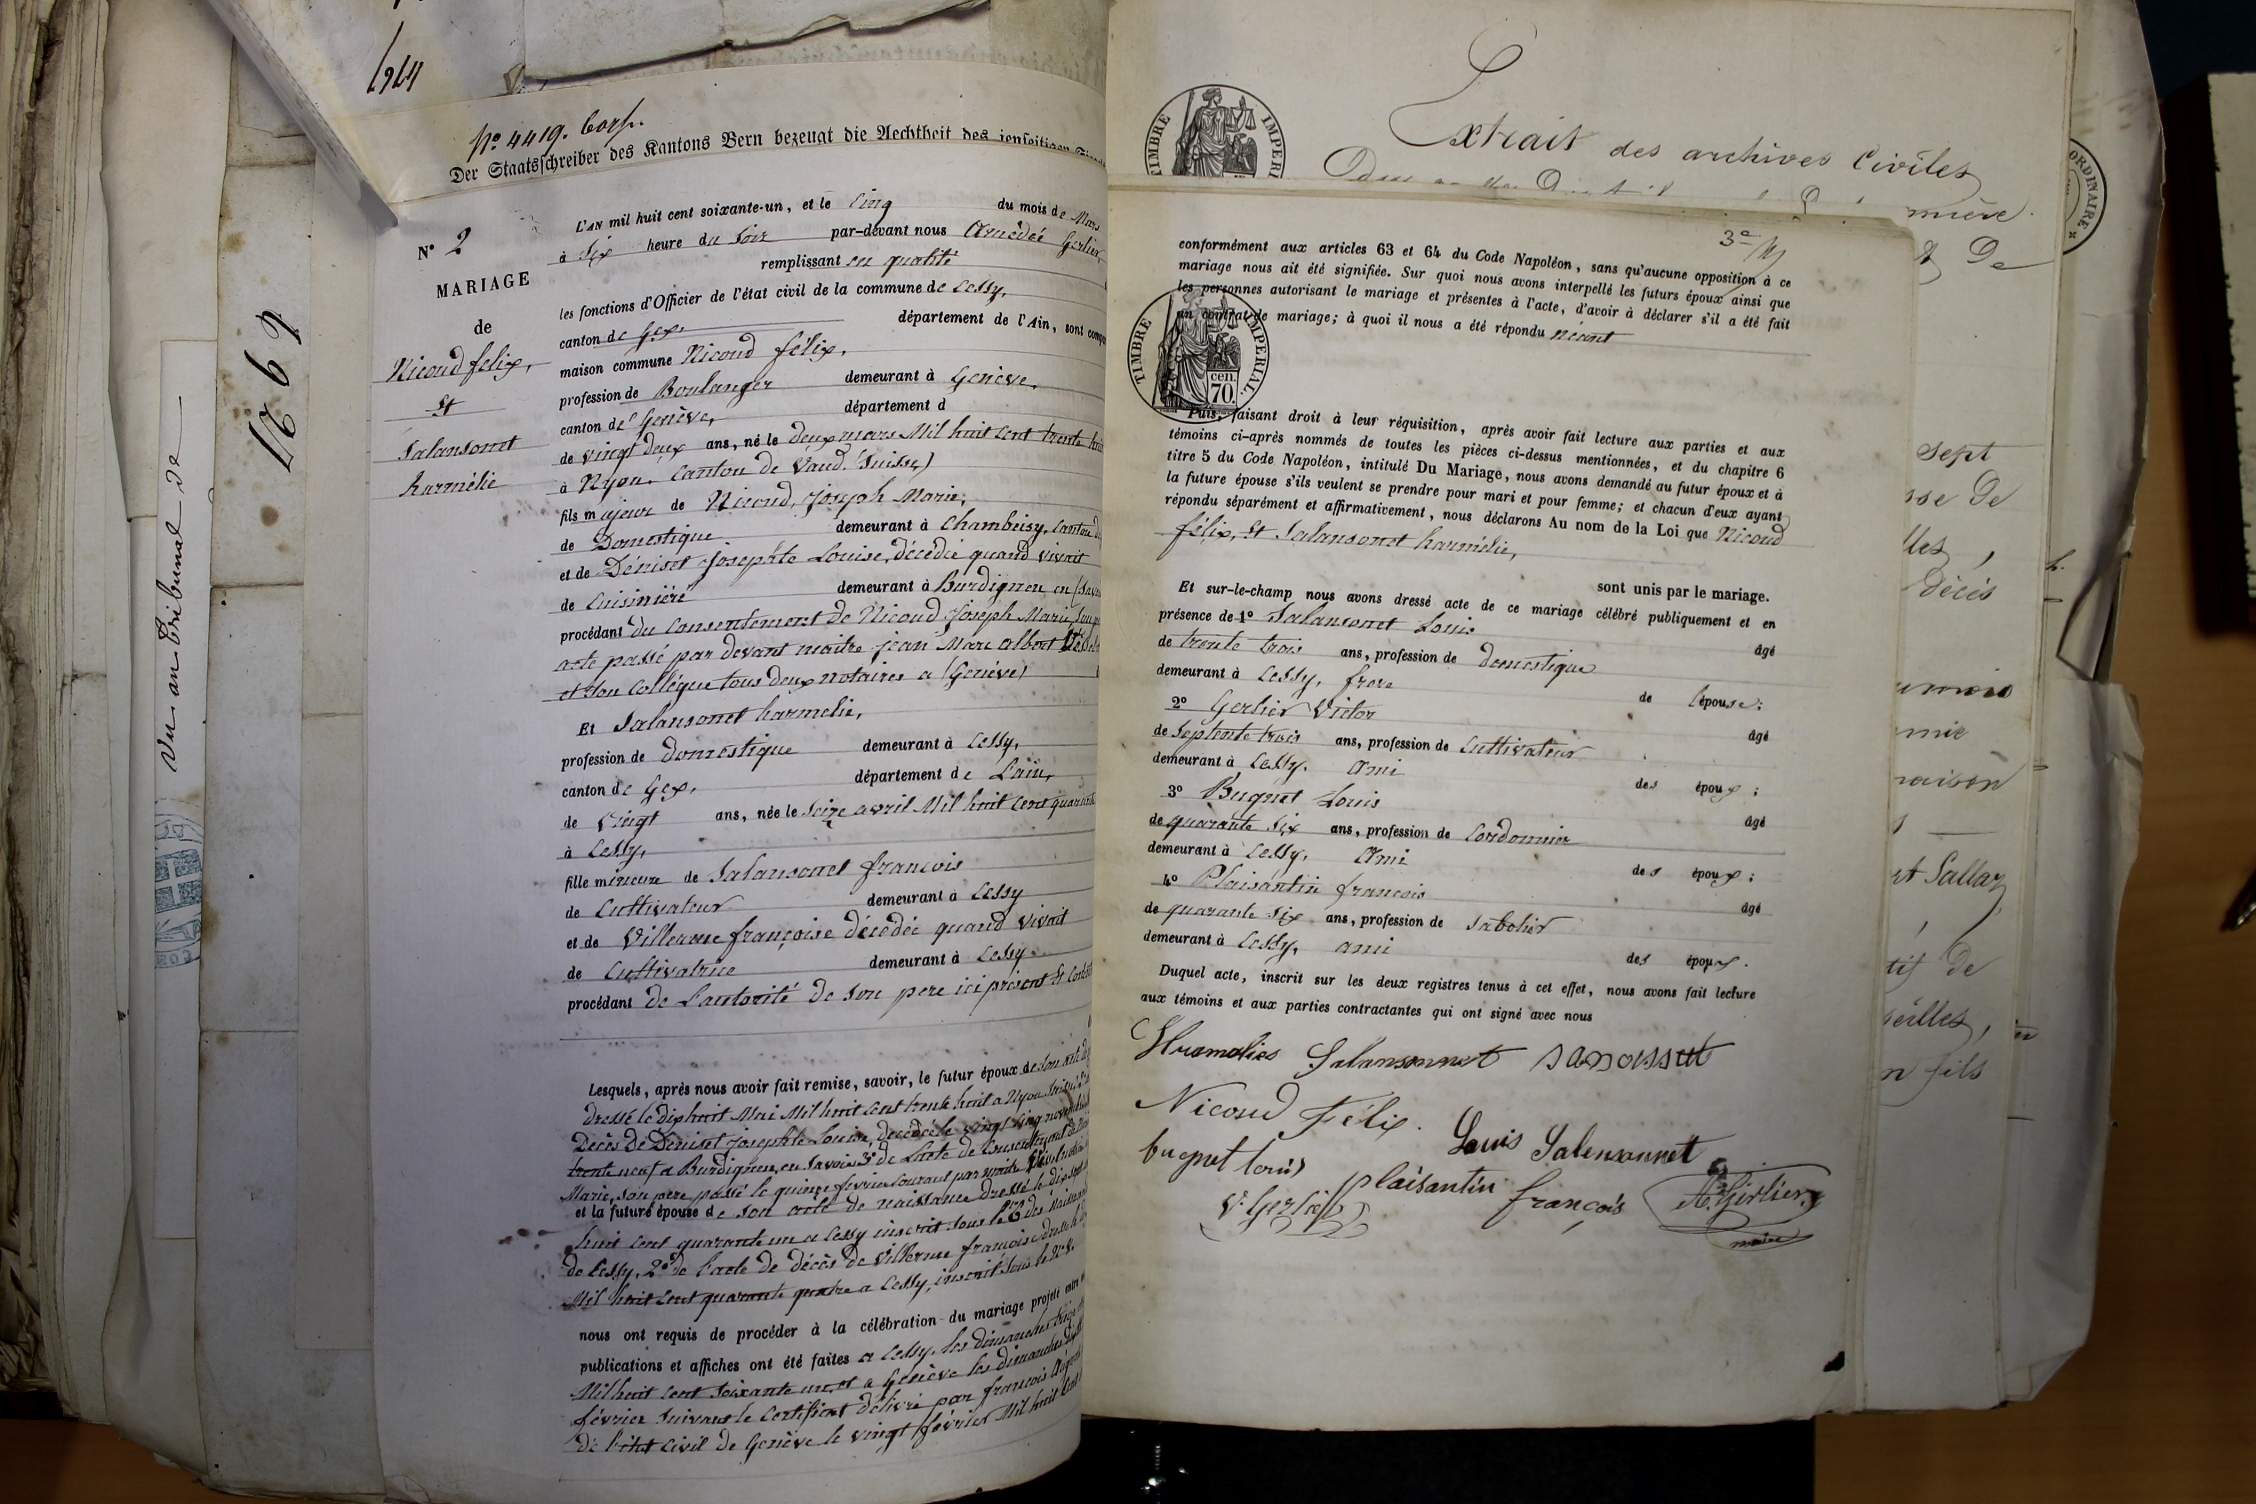 1264
No 4419.
Der Staatsschreiber des Kantons Bern bezeugt die Aechtheit des jenseitigen
Vu au Tribunal de
No 2
MARIAGE
de
Nicoud felix,
et
Salansonet
harmélie
L'AN mil huit cent soixante-un, et le cinq du mois de Mars
à Six heure du soir par-devant nous Amédée Gerlier,
remplissant en qualité
les fonctions d'Officier de l'état civil de la commune de Cessy,
canton de Gex, département de l'Ain, sont
maison commune Nicoud félix,
profession de Boulanger demeurant à Genève,
canton de Genève, département d
de vingt deux ans, né le deux mars Mil huit cent trente huit
à Nyon. Canton de Vaud. (Suisse)
fils majeur de Nicoud, Joseph Marie,
de Domestique demeurant à Chambeisy, canton
et de Déniset Josephte Louise, décédée quand vivait
de Cuisinière demeurant à Burdignen en
procédant du consentement de Nicoud Joseph Marie,
acte passé par devant maitre jean Marc albert
et son Collégue tous deux notaires a (Genève)
Et Salansonet harmelie,
profession de domestique demeurant à Cessy,
canton de Gex, département de L'ain,
de vingt ans, née le Seize avril Mil huit cent quarante
à Cessy,
fille mineure de Salansonet françois
de Cultivateur demeurant à Cessy
et de Villerme françoise décédée quand vivait
de Cultivatrice demeurant à Cessy.
procédant de L'autorité de son pere ici présent et
Lesquels, après nous avoir fait remise, savoir, le futur époux de son acte de
dressé le dix huit Mai Mil huit cent trente huit a Nyon
Décès de Deniset Josephte Louise, décédée le vingt cinq
trente neuf a Burdignen, en Savoie 3° de L'acte de
Marie, son père passé le quinze fevrier courant par
et la future épouse de son acte de naissance dressé le dix sept
huit cent quarante un a Cessy inscrit sous le des
de Cessy, 2° de l'acte de décès de Villerme francoise
Mil huit cent quarante quatre a Cessy, inscrit sous le No 8.
nous ont requis de procéder à la célébration du mariage projeté entre
publications et affiches ont été faites a Cessy. les dimanches
Mil huit cent soixante un, et a Genève les dimanches
février suivant le Certificat délivré par francois
de l'état civil de Genève le vingt février Mil huit cent
TIMBRE IMPERIAL
Extrait des archives Civiles
ORDINAIRE
3e
conformément aux articles 63 et 64 du Code Napoléon, sans qu'aucune opposition à ce
mariage nous ait été signifiée. Sur quoi nous avons interpellé les futurs époux ainsi que
les personnes autorisant le mariage et présentes à l'acte, d'avoir à déclarer s'il a été fait
un contrat de mariage; à quoi il nous a été répondu néant
TIMBRE IMPERIAL.
cen.
70.
Puis, faisant droit à leur réquisition, après avoir fait lecture aux parties et aux
témoins ci-après nommés de toutes les pièces ci-dessus mentionnées, et du chapitre 6
titre 5 du Code Napoléon, intitulé Du Mariage, nous avons demandé au futur époux et à
la future épouse s'ils veulent se prendre pour mari et pour femme; et chacun d'eux ayant
répondu séparément et affirmativement, nous déclarons Au nom de la Loi que Nicoud
félix, et Salansonet harmélie,
sont unis par le mariage.
Et sur-le-champ nous avons dressé acte de ce mariage célébré publiquement et en
présence de 1° Salansonet Louis âgé
de trente trois ans, profession de domestique
demeurant à Cessy, frere de l'épouse;
2° Gerlier Victor âgé
de septente trois ans, profession de Cultivateur
demeurant à Cessy. Ami des époux;
3° Bugnet Louis âgé
de quarante six ans, profession de Cordonnier
demeurant à Cessy, Ami des époux;
4° Plaisantin francois âgé
de quarante six ans, profession de Sabotier
demeurant à Cessy, ami des époux.
Duquel acte, inscrit sur les deux registres tenus à cet effet, nous avons fait lecture
aux témoins et aux parties contractantes qui ont signé avec nous
Salansonnet
Nicoud Félix.
Louis Salensonnet
bugnet louis
plaisantin françois
V. Gerlier
A. Gerlier
maire
sept
décès
raison
et Sallaz
n fils